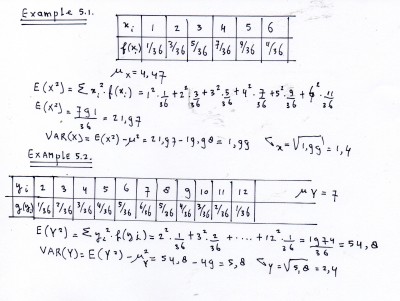 Example 5.1.
xi 1 2 3 4 5 6
f(xi) 1/36 3/36 5/36 7/36 9/36 11/36
μx = 4,47
E(X²) = Σ xi² · f(xi) = 1² · 1/36 + 2² · 3/36 + 3² · 5/36 + 4² · 7/36 + 5² · 9/36 + 6² · 11/36
E(X²) = 791/36 = 21,97
VAR(X) = E(X²) - μ² = 21,97 - 19,98 = 1,99 σx = √1,99 = 1,4
Example 5.2.
yi 2 3 4 5 6 7 8 9 10 11 12
g(yi) 1/36 2/36 3/36 4/36 5/36 6/36 5/36 4/36 3/36 2/36 1/36
μY = 7
E(Y²) = Σ yi² · f(yi) = 2² · 1/36 + 3² · 2/36 + ..... + 12² · 1/36 = 1974/36 = 54,8
VAR(Y) = E(Y²) - μ²Y = 54,8 - 49 = 5,8 σy = √5,8 = 2,4